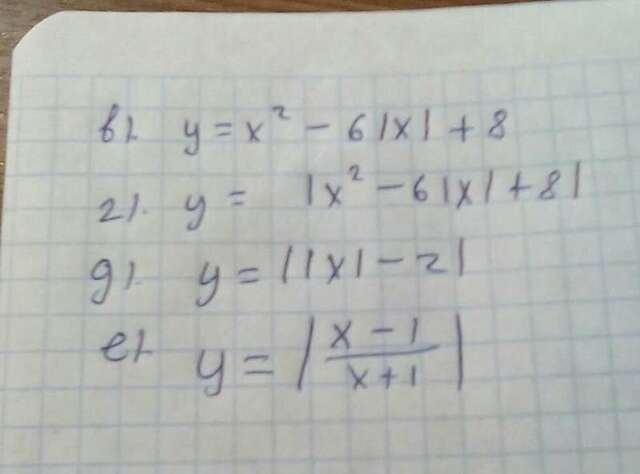 в). y = x² - 6|x| + 8
г). y = |x² - 6|x| + 8|
д). y = ||x| - 2|
е). y = |(x - 1)/(x + 1)|